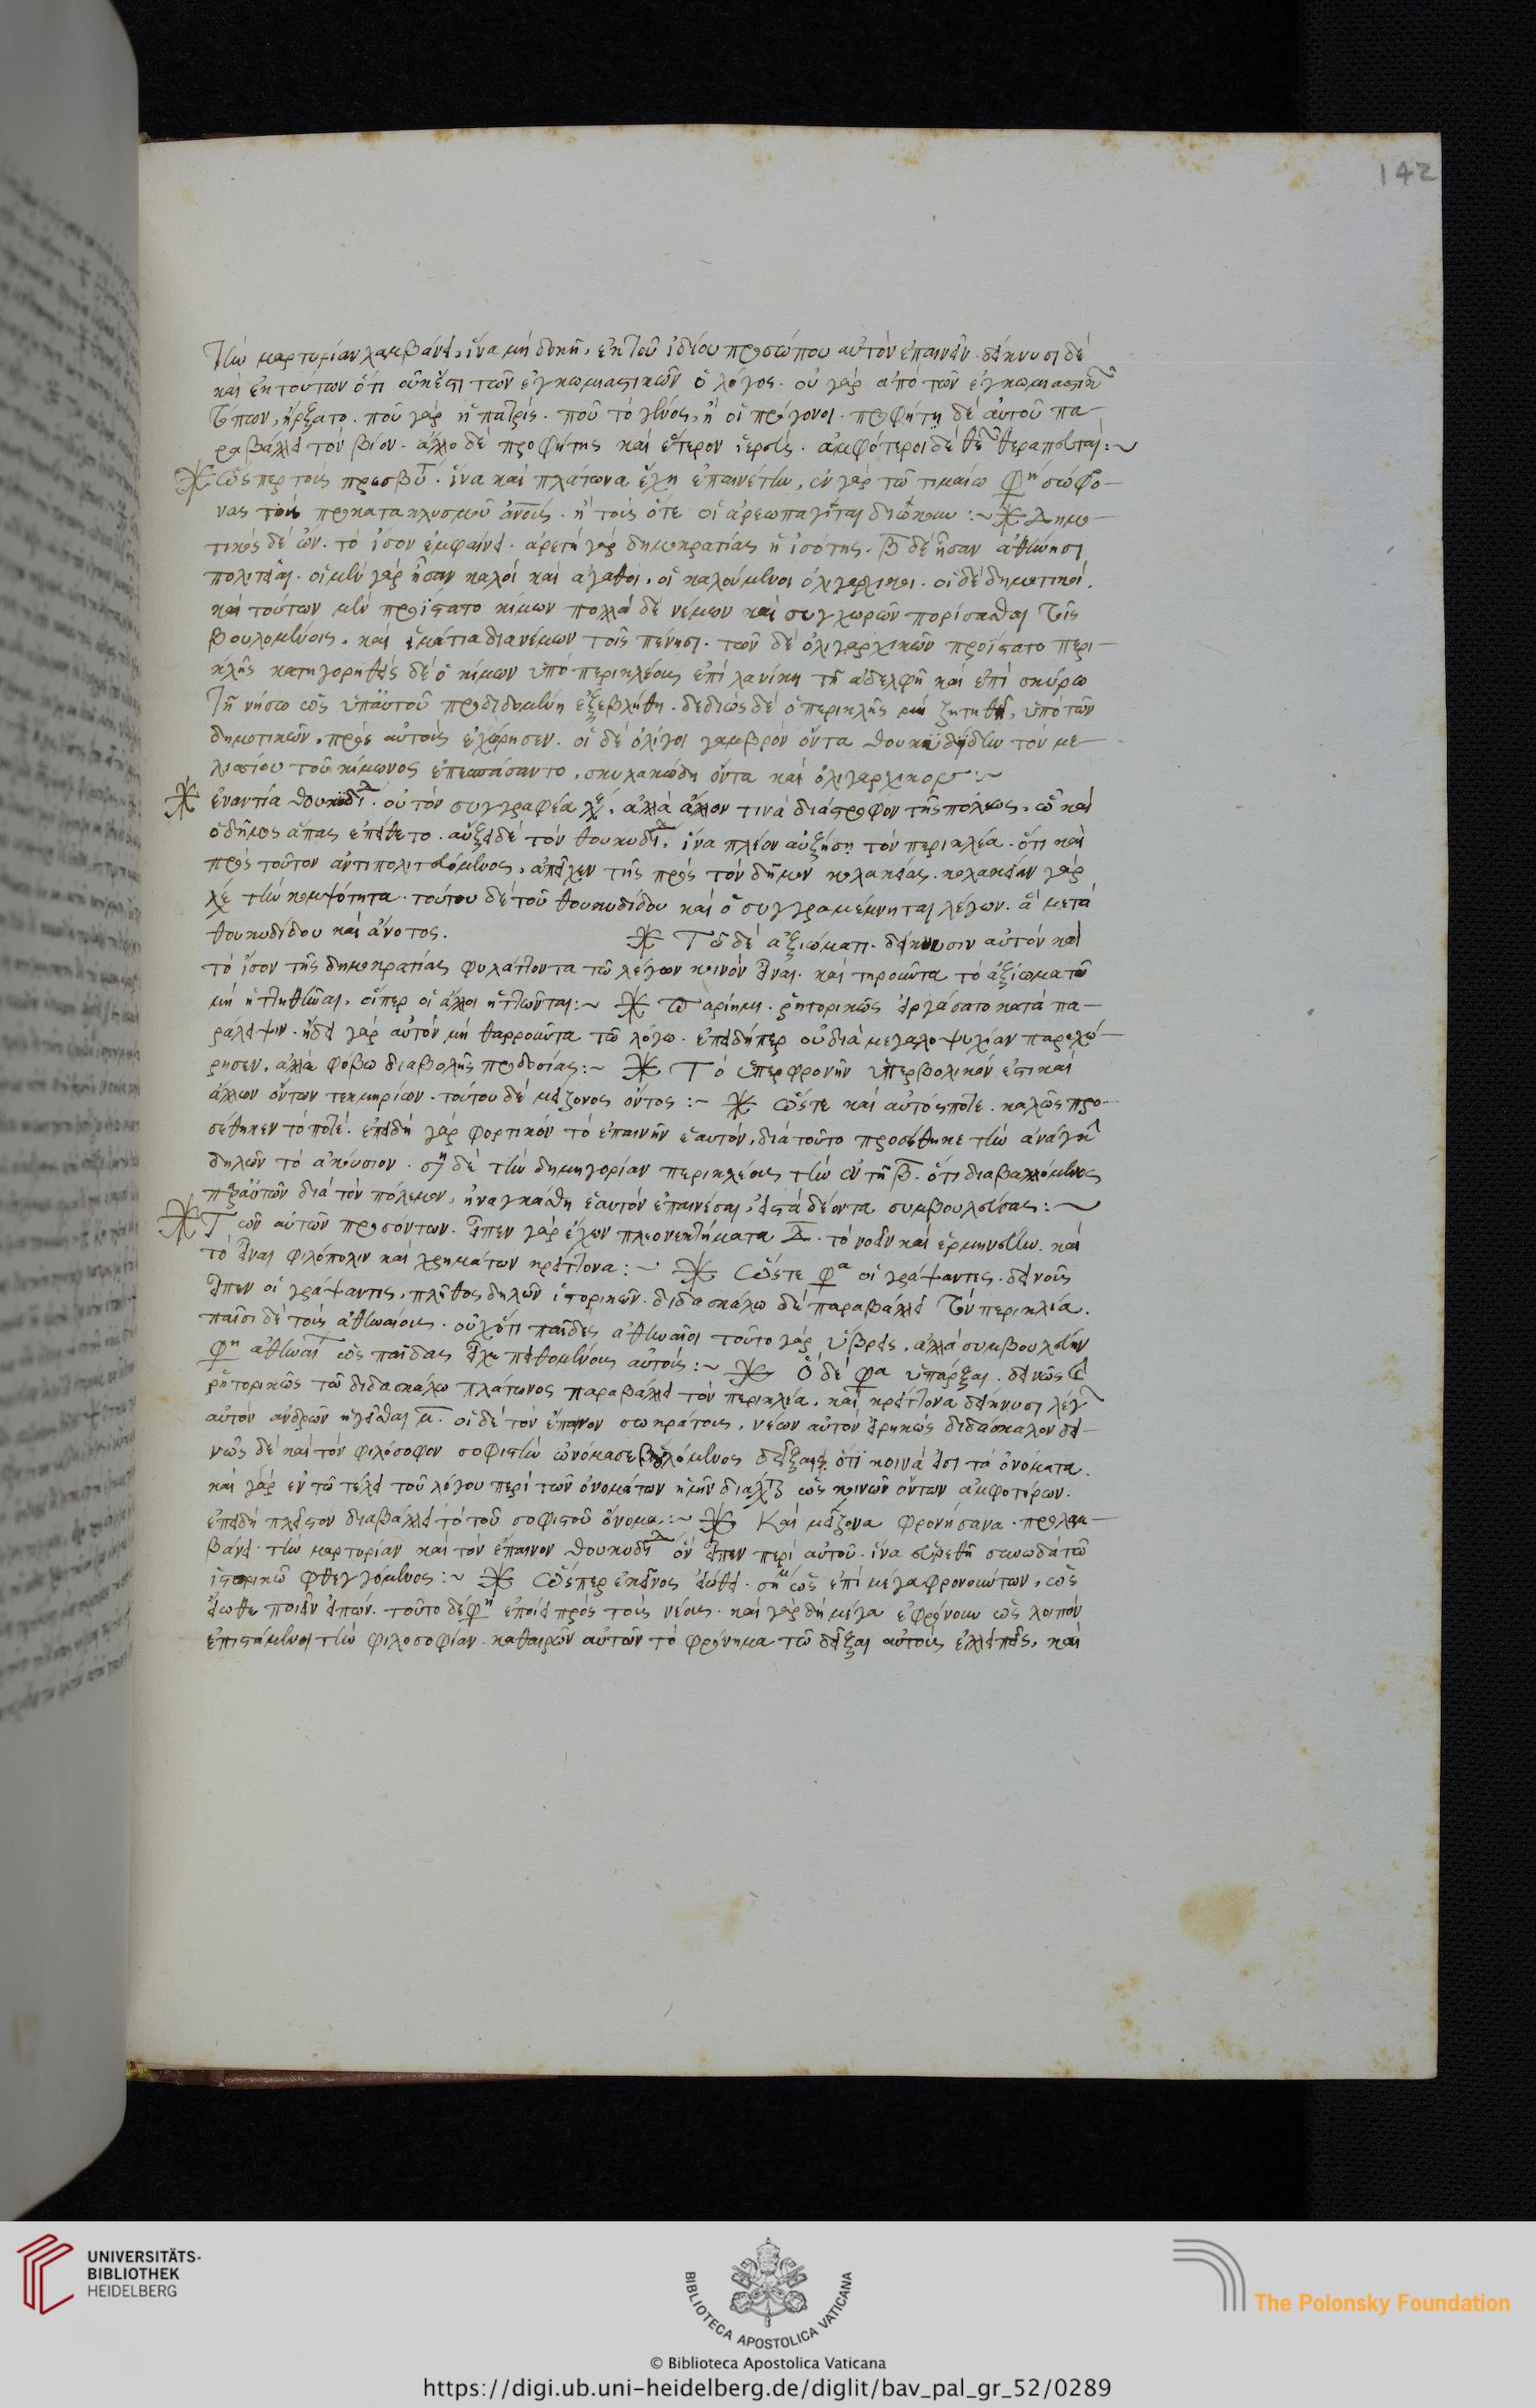 142
τὴν μαρτυρίαν λαμβάνει, ἵνα μὴ δοκῆ, ἐκ τοῦ ἰδίου προσώπου αὐτὸν ἐπαινεῖν. δείκνυσι δὲ
καὶ ἐκ τούτων ὅτι οὐκ ἔστι τῶν ἐγκωμιαστικῶν ὁ λόγος. οὐ γὰρ ἀπὸ τῶν ἐγκωμιαστικῶν
τόπων, ἤρξατο. ποῦ γὰρ ἡ πατρίς. ποῦ τὸ γένος, ἢ οἱ πρόγονοι. προφήτη δὲ αὐτοῦ πα-
ραβάλλει τὸν βίον. ἄλλο δὲ προφήτης καὶ ἕτερον ἱερεύς. ἀμφότεροι δὲ θεοῦ θεραπευταί:~
ὥσπερ τοὺς πρεσβυτ. ἵνα καὶ πλάτωνα ἔχη ἐπαινέτην, ἐν γὰρ τῶ τιμαίω φη σώφρο-
νας τοὺς προκατακλυσμοῦ ἀνους. ἢ τοὺς ὅτε οἱ ἀρεωπαγῖται διώκουν:~ Δημο-
τικὸς δὲ ὢν. τὸ ἴσον ἐμφαίνει. ἀρετὴ γὰρ δημοκρατίας ἡ ἰσότης. β δὲ ἦσαν ἀθήνησι
πολιτεῖαι. οἱ μὲν γὰρ ἦσαν καλοὶ καὶ ἀγαθοὶ, οἱ καλούμενοι ὀλιγαρχικοι. οἱ δὲ δημοτικοί.
καὶ τούτων μὲν προΐστατο κίμων πολλὰ δὲ νέμων καὶ συγχωρῶν πορίσασθαι τοῖς
βουλομένοις, καὶ ἱμάτια διανέμων τοῖς πένησι. τῶν δὲ ὀλιγαρχικῶν προΐστατο περι-
κλῆς κατηγορηθεὶς δὲ ὁ κίμων ὑπὸ περικλέους ἐπὶ λανίκη τῆ ἀδελφῆ καὶ ἐπὶ σκύρω
τῆ νήσω ὡς ὑπ' αὐτοῦ προδιδομένη ἐξεβλήθη. δεδιὼς δὲ ὁ περικλῆς μὴ ζητηθῆ, ὑπὸ τῶν
δημοτικῶν, πρὸς αὐτοὺς ἐχώρησεν. οἱ δὲ ὀλίγοι γαμβρὸν ὄντα θουκυδίδην τὸν με
λισίου τοῦ κίμωνος ἐπεσπάσαντο, σκυλακώδη ὄντα καὶ ὀλιγαρχικόν:~
ἐναντία θουκυδίδ. οὐ τὸν συγγραφέα λέγει, ἀλλὰ ἄλλον τινὰ διάστροφον τῆς πόλεως, ὧ καὶ
ὁ δῆμος ἅπας ἐπείθετο. αὔξει δὲ τὸν θουκυδίδ, ἵνα πλέον αὐξήση τὸν περικλέα. ὅτι καὶ
πρὸς τοῦτον ἀντιπολιτευόμενος, ἀπεῖχεν τῆς πρὸς τὸν δῆμον κολακείας. κολακείαν γὰρ
λέγει τὴν κομψότητα. τούτου δὲ τοῦ θουκυδίδου καὶ ὁ συγγρα μέμνηται λέγων. ἃ μετὰ
θουκυδίδου καὶ ἅγνωνος.
Τῶ δὲ ἀξιώματι. δείκνυσιν αὐτὸν καὶ
τὸ ἴσον τῆς δημοκρατίας φυλάττοντα τῶ λέγων κοινὸν εἶναι. καὶ τηροῦντα τὸ ἀξίωμα τῶ
μὴ ἡττηθῆναι, οἷπερ οἱ ἄλλοι ἡττῶνται:~ Παρίημι. ῥητορικῶς εἰργάσατο κατὰ πα-
ράλειψιν. ἤδει γὰρ αὐτὸν μὴ θαρροῦντα τῶ λόγω. ἐπειδήπερ οὐ διὰ μεγαλοψυχίαν παρεχώ-
ρησεν, ἀλλὰ φόβω διαβολῆς προδοσίας:~ Τὸ ὑπερφρονῆν ὑπερβολικόν ἐστι καὶ
ἄλλων ὄντων τεκμηρίων. τούτου δὲ μείζονος ὄντος:~ ὥστε καὶ αὐτός ποτε. καλῶς προ-
σέθηκεν τὸ ποτέ. ἐπειδὴ γὰρ φορτικὸν τὸ ἐπαινῆν ἑαυτόν, διὰ τοῦτο προσέθηκε τὴν ἀνάγκ
δηλῶν τὸ ἀκούσιον. ση δὲ τὴν δημηγορίαν περικλέους τὴν ἐν τῆ β. ὅτι διαβαλλόμενος
παρ' αὐτῶν διὰ τὸν πόλεμον, ἠναγκάσθη ἑαυτὸν ἐπαινέσαι, εἰς τὰ δέοντα συμβουλεύσας:~
Τῶν αὐτῶν προσόντων. εἶπεν γὰρ ἔχων πλεονεκτήματα δ. τὸ νοεῖν καὶ ἑρμηνεύειν. καὶ
τὸ εἶναι φιλόπολιν καὶ χρημάτων κρείττονα:~ ὥστε φα οἱ γράψαντες. δεινοῦς
εἶπεν οἱ γράψαντες, πλῆθος δηλῶν ἱστορικῶν. διδασκάλω δὲ παραβάλλει τὸν περικλέα.
παισὶ δὲ τοὺς ἀθηναίους. οὐχ ὅτι παῖδες ἀθηναῖοι τοῦτο γὰρ ὕβρις, ἀλλὰ συμβουλεύειν
φη ἀθηναι ὡς παῖδας εἶχε πειθομένους αὐτούς:~ Ὁ δέ φα ὑπάρξαι. δεινῶς καὶ
ῥητορικῶς τῶ διδασκάλω πλάτωνος παραβάλλει τὸν περικλέα, καὶ κρείττονα δείκνυσι λέγ
αὐτὸν ἀνδρῶν ἡγεῖσθαι μ. οἱ δὲ τὸν ἔπαινον σωκράτους, νέων αὐτὸν εἰρηκὼς διδάσκαλον δει-
νῶς δὲ καὶ τὸν φιλόσοφον σοφιστὴν ὠνόμασε βουλόμενος δεῖξαι, ὅτι κοινά εἰσι τὰ ὀνόματα.
καὶ γὰρ ἐν τῶ τέλει τοῦ λόγου περὶ τῶν ὀνομάτων ἡμῖν διαλέγεται ὡς κοινῶν ὄντων ἀμφοτέρων.
ἐπειδὴ πλεῖστον διαβάλλει τὸ τοῦ σοφιστοῦ ὄνομα:~ Καὶ μείζονα φρονήσανα. προλαμ-
βάνει τὴν μαρτυρίαν καὶ τὸν ἔπαινον θουκυδίδ ὃν εἶπεν περὶ αὐτοῦ. ἵνα εὑρεθῆ συνωδὰ τῶ
ἱστορικῶ φθεγγόμενος:~ ὥσπερ ἐκεῖνος εἰώθει. ση ὡς ἐπὶ μέγα φρονούντων, ὡς
εἴωθε ποιεῖν εἰπών. τοῦτο δέ φη ἐποίει πρὸς τοὺς νέους. καὶ γὰρ δὴ μέγα ἐφρόνουν ὡς λοιπὸν
ἐπιστάμενοι τὴν φιλοσοφίαν. καθαιρῶν αὐτῶν τὸ φρόνημα τῶ δεῖξαι αὐτοὺς ἐλλειπεῖς, καὶ
UNIVERSITÄTS-
BIBLIOTHEK
HEIDELBERG
BIBLIOTECA APOSTOLICA VATICANA
The Polonsky Foundation
© Biblioteca Apostolica Vaticana
https://digi.ub.uni-heidelberg.de/diglit/bav_pal_gr_52/0289